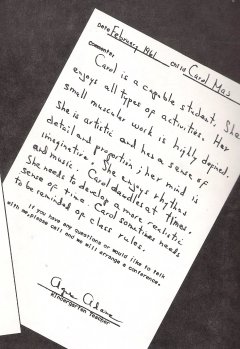 Date February 1961 Child Carol Mas
Comments:
Carol is a capable student. She
enjoys all types of activities. Her
small muscular work is highly defined.
She is artistic and has a sense of
detail and proportion; her mind is
imaginative. She enjoys rhythms
and music. Carol doodles at times.
She needs to develop a more realistic
sense of time. Carol sometimes needs
to be reminded of class rules.
If you have any questions or would like to talk
with me, please call and we will arrange a conference.
Kindergarten Teacher